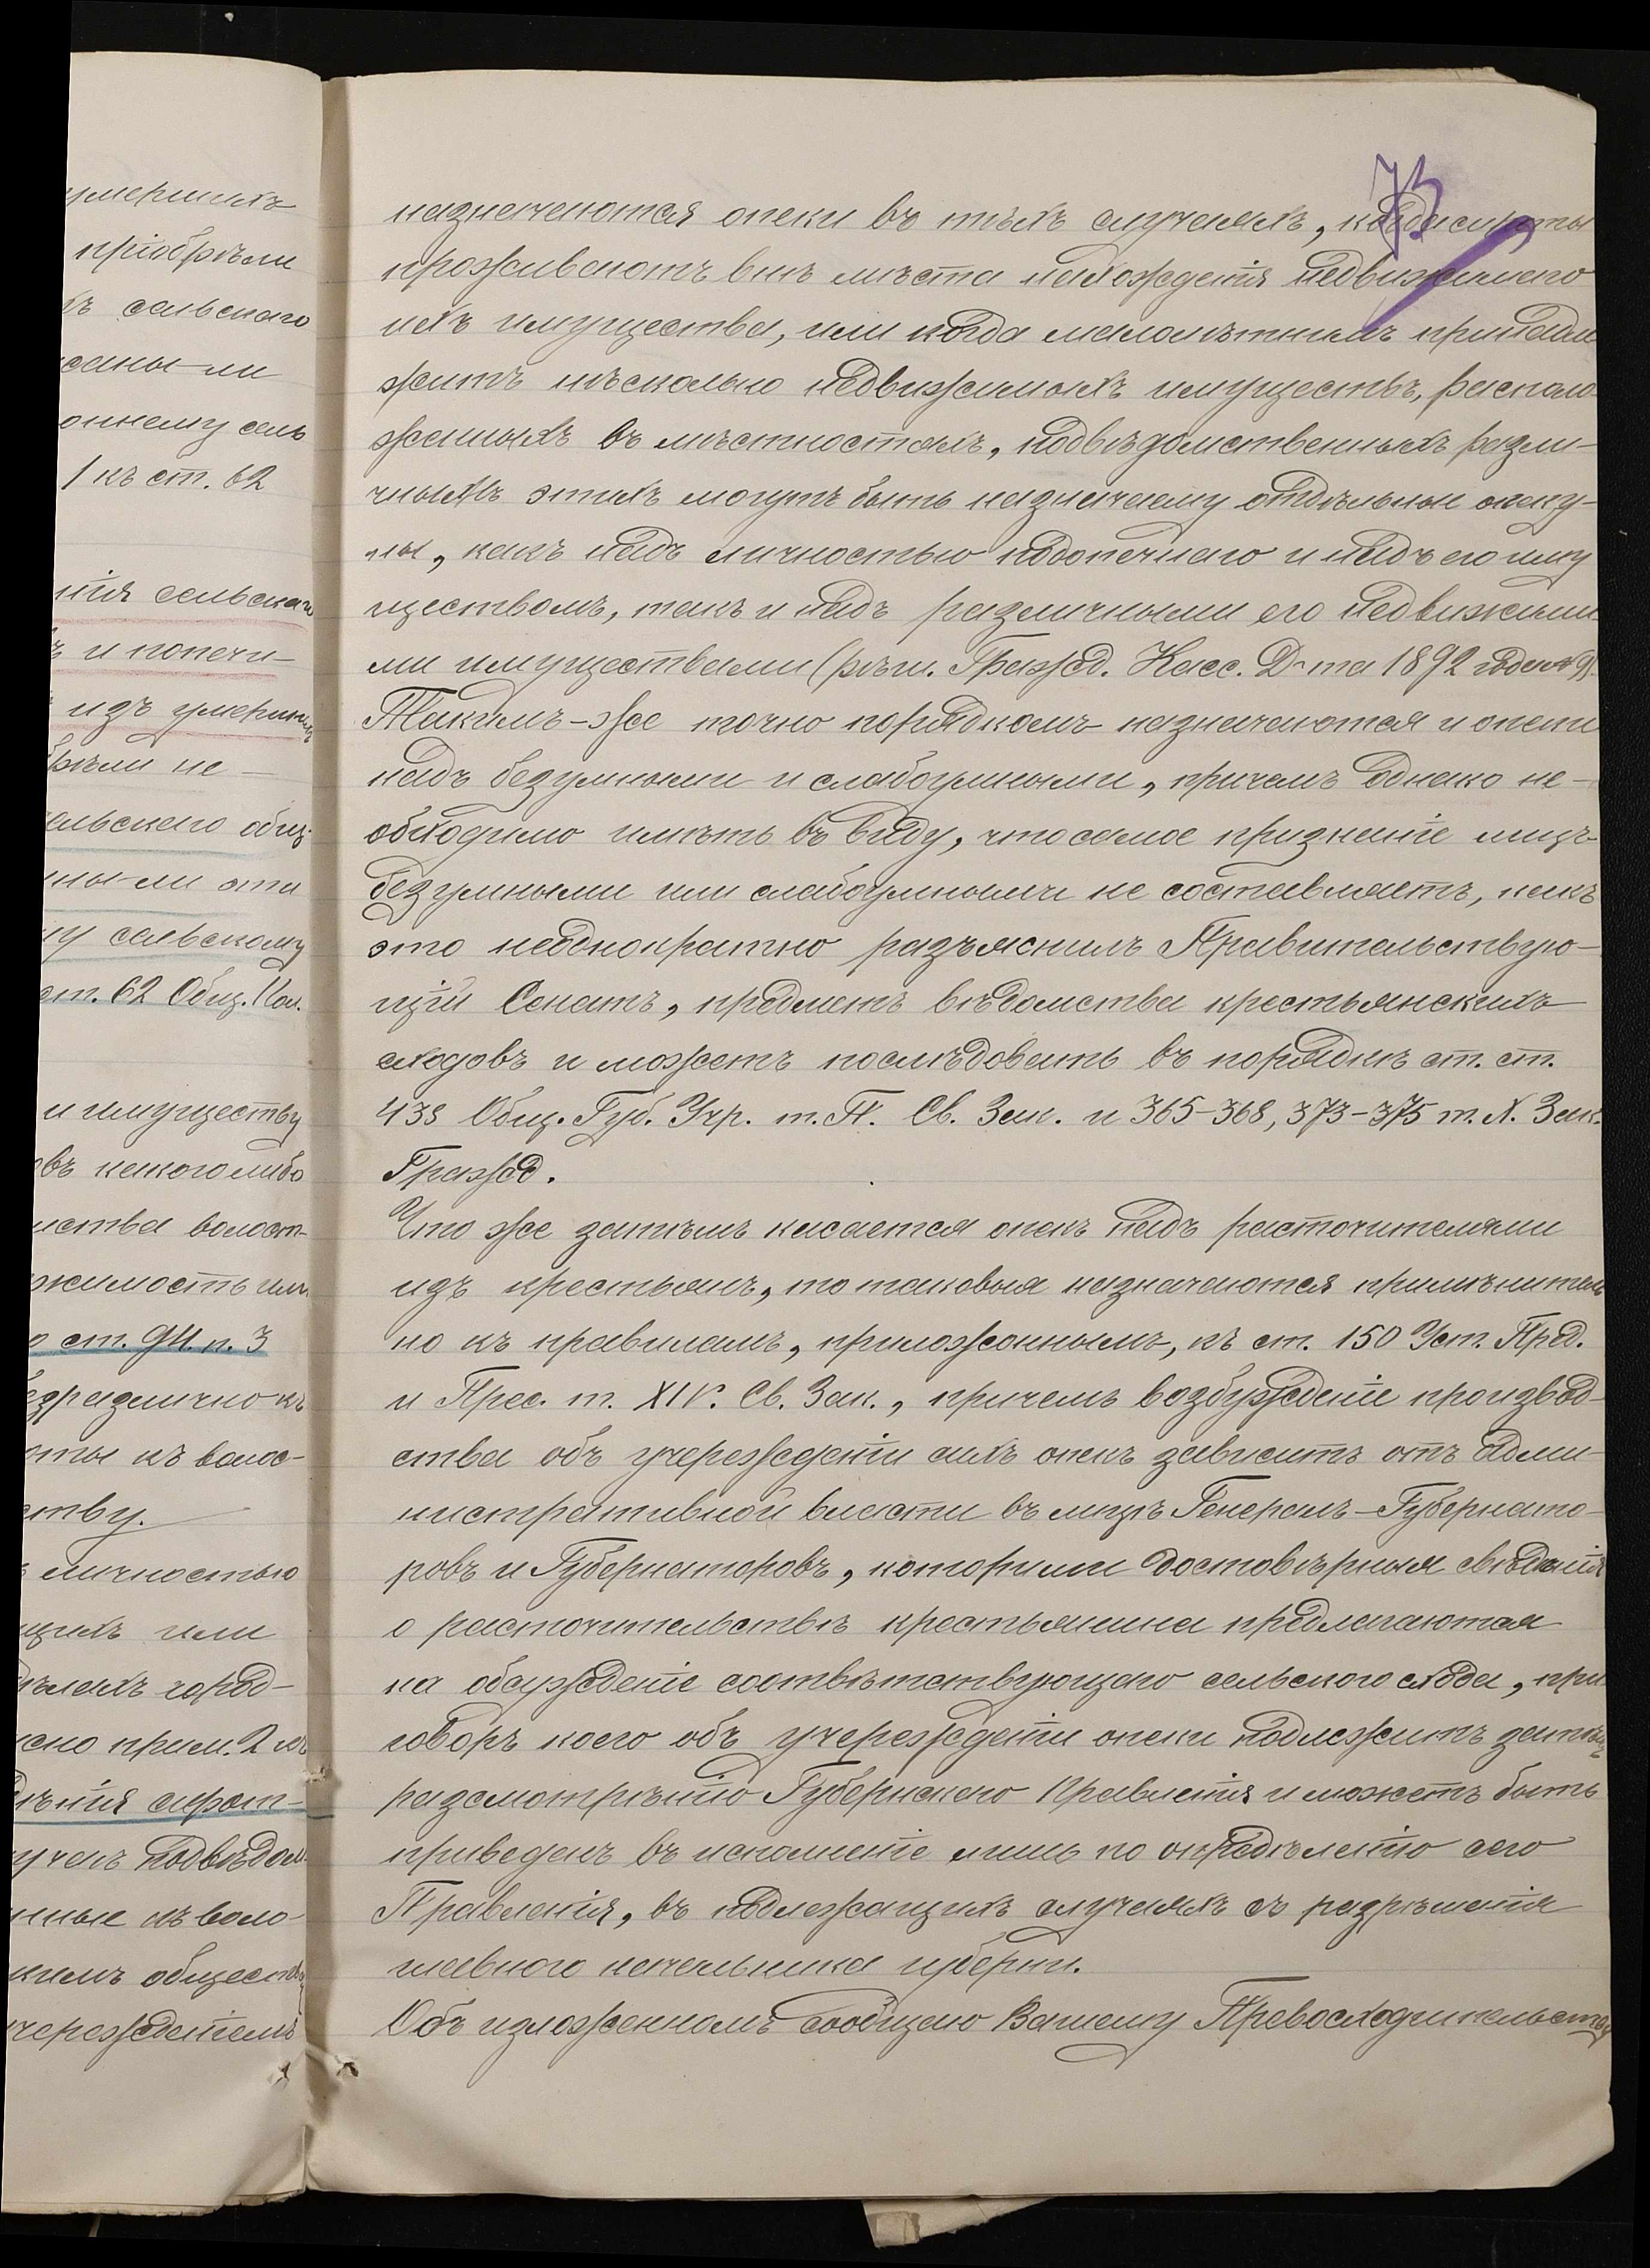 умершихъ
пріобрѣли
хъ сельскаго
саны-ли
оннему сель
1 къ ст. 62
нія сельскаго
ъ и попечи-
изъ умершихъ
брѣли не-
сельскаго общ.
ны-ли эти
му сельскому
ст. 62 Общ. Пол.
и имуществу
овъ какого либо
мства волост-
жимость или
о ст. 94. п. 3
безразлично къ
оты къ волос-
ству.
личностью
щихъ или
дѣлахъ город-
прим. 2
дѣнія сирот-
учекъ подвѣдом
нные къ воло-
скимъ обществ
чережденіемъ
73
назначаются опеки въ тѣхъ случаяхъ, когда сироты
проживаютъ внѣ мѣста нахожденія недвижимаго
ихъ имущества, или когда малолѣтнимъ принадле
житъ нѣсколько недвижимыхъ имуществъ, распало
женныхъ въ мѣстностяхъ, подвѣдомственныхъ разли-
чныхъ этихъ могутъ быть назначаему отдѣльные опеку-
ны, какъ надъ личностью подопечнаго и надъ его иму
ществомъ, такъ и надъ различными его недвижимы
ми имуществами (рѣш. Гражд. Касс. Д-та 1892 года № 91.
Такимъ-же точно порядкомъ назначаются и опеки
надъ безумными и слабоумными, причемъ однако не-
обходимо имѣть въ виду, что самое признаніе лицъ
безумными или слабоумными не составляетъ, какъ
это неоднократно разъяснилъ Правительствую-
щій Сенатъ, предметъ вѣдомства крестьянскихъ
сходовъ и можетъ послѣдовать въ порядкѣ ст. ст.
438 Общ. Губ. Учр. т. II. Св. Зак. и 365-368, 373-375 т. X. Зак.
Гражд.
Что же затѣмъ касается опекъ надъ расточителями
изъ крестьянъ, то таковыя назначаются примѣнитель
но къ правиламъ, приложеннымъ, къ ст. 150 Уст. Пред.
и Прес. т. XIV. Св. Зак., причемъ возбужденіе производ-
ства объ учережденіи сихъ опекъ зависитъ отъ адми-
нистративной власти въ лицѣ Генералъ-Губернато-
ровъ и Губернаторовъ, которыми достовѣрныя свѣдѣнія
о расточительствѣ крестьянина предлагаются
на обсужденіе соотвѣтствующаго сельскаго схода, при
говоръ коего объ учережденіи опеки подлежитъ затѣмъ
разсмотрѣнію Губернскаго Правленія и можетъ быть
приведенъ въ исполненіе лишь по опредѣленію сего
Правленія, въ подлежащихъ случаяхъ съ разрѣшенія
главного начальника губерніи.
Объ изложенномъ сообщаю Вашему Превосходительству